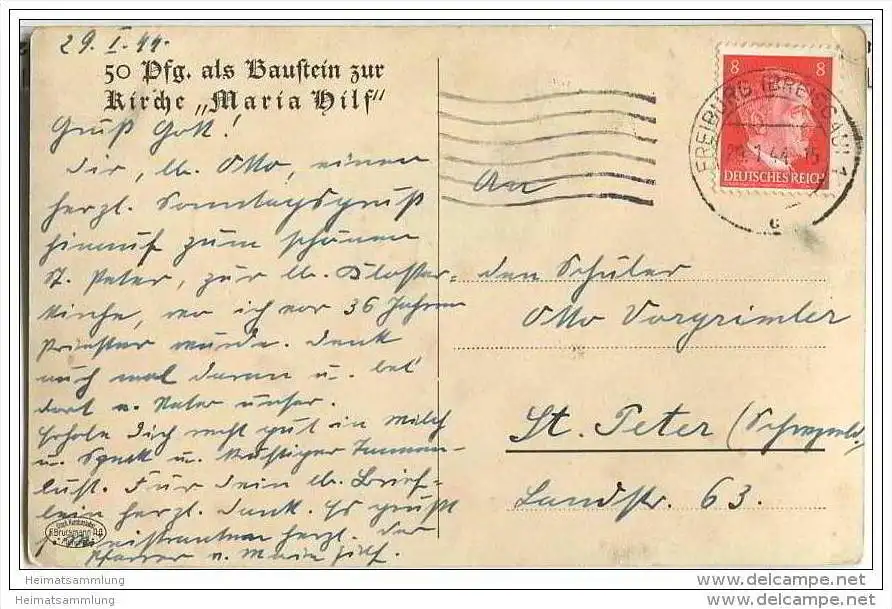 29. I. 44.
50 Pfg. als Baustein zur
Kirche „Maria Hilf"
Grüß Gott!
Dir, lb. Otto, einen
herzl. Sonntagsgruß
hinauf zum schönen
St. Peter, zur lb. Kloster=
kirche, wo ich vor 36 Jahren
Priester wurde. Denk
auch mal daran u. bet'
dort e. Vater unser.
Erhole Dich recht gut in Milch
u. Speck u. Tannen-
luft. Für Dein lb. Brief-
lein herzl. Dank. Es grüßt
s. Ministranten herzl. der
Pfarrer v. Maria Hilf.
F. Bruckmann A.G.
8 8
DEUTSCHES REICH
FREIBURG (BREISGAU) 1
29.1.44.15
c
An
den Schüler
Otto Vorgrimler
St. Peter (Schwarzwld.)
Landstr. 63.
Heimatsammlung
Heimatsammlung
www.delcampe.net
www.delcampe.net